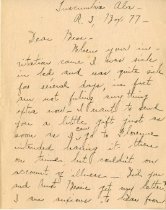 Tuscumbia Ala.
R 3, Box 77 -
Dear Miss -
When your in-
vitation came I was sick
in bed and was quite sick
for several days, in fact
am not feeling any thing
extra now - I wanted to send
you a little gift just as
soon as I could go to Florence
intended leaving it there
on but couldn't on
account of illness - Did you
and Miss get my letter
I was anxious to hear from